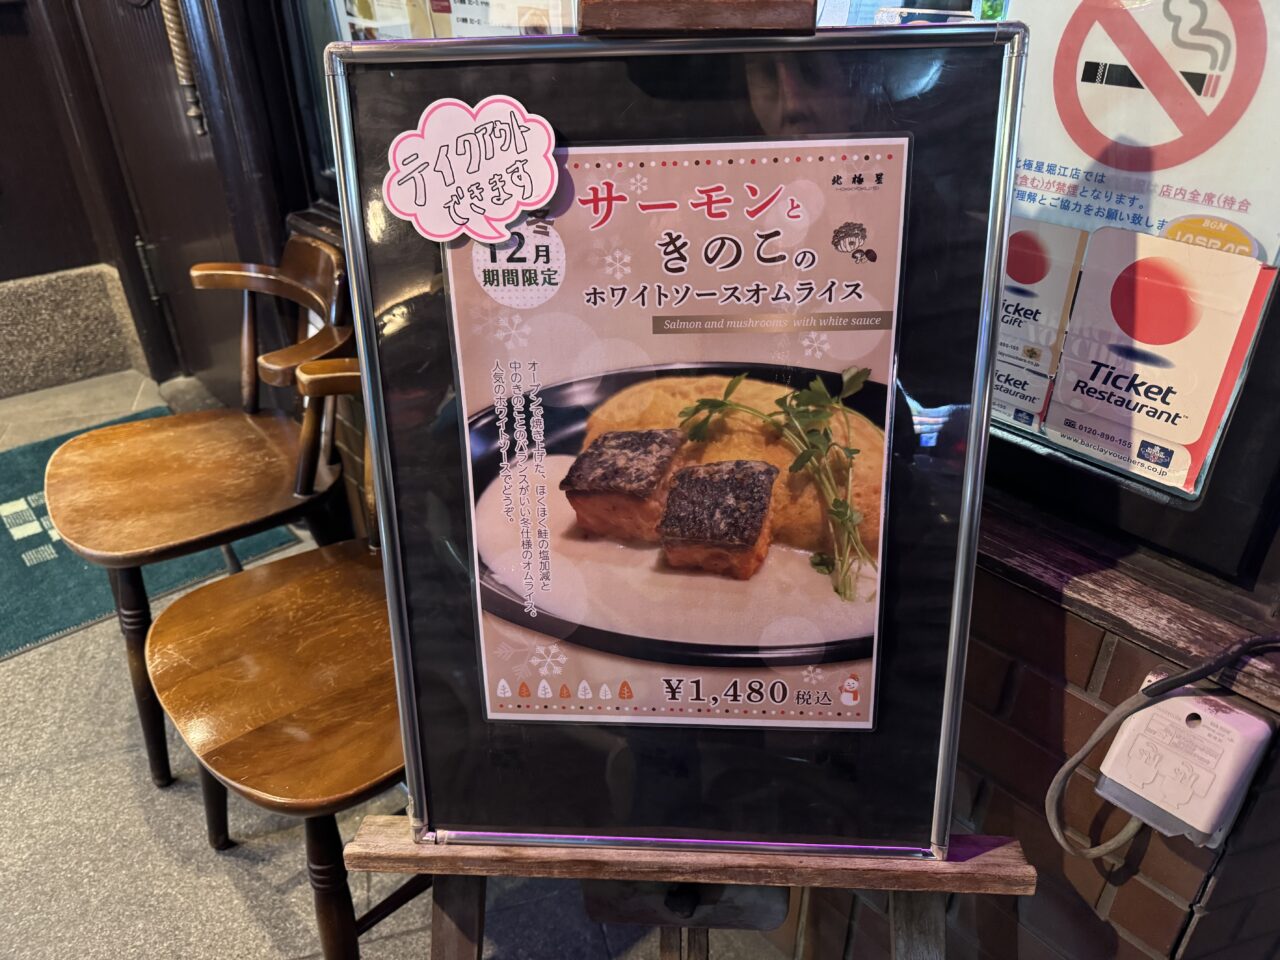 テイクアウト
できます
冬
12月
期間限定
サーモンと
きのこの
ホワイトソースオムライス
Salmon and mushrooms with white sauce
北極星
オーブンで焼き上げた、ほくほく鮭の塩加減と
中のきのことのバランスがいい冬仕様のオムライス。
人気のホワイトソースでどうぞ。
¥1,480 税込
北極星堀江店では
店内全席(待合
含む)が禁煙となります。
理解とご協力をお願い致しま
BGM
JASRAC
Ticket
Restaurant
0120-890-155
www.barclayvouchers.co.jp
icket
Gift
icket
Restaurant